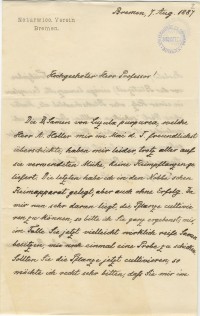 Naturwiss. Verein
Bremen.
Bremen, 7. Aug. 1887
Hochgeehrter Herr Professor!
Die Samen von Luzula purpurea, welche
Herr A. Heller mir im Mai d. J. freundlichst
überschickte, haben mir leider, trotz aller auf
sie verwendeten Mühe, keine Keimpflanzen ge-
liefert. Die letzten habe ich in den Nobbe'schen
Keimapparat gelegt, aber auch ohne Erfolg. Da
mir nun sehr daran liegt die Pflanze cultivi-
ren zu können, so bitte ich Sie ganz ergebenst, mir,
im Falle Sie jetzt vielleicht wirklich reife Samen
besitzen, mir noch einmal eine Probe zu schicken.
Sollten Sie die Pflanze jetzt cultivieren, so
möchte ich recht sehr bitten, daß Sie mir im